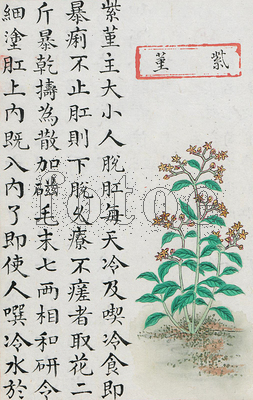 紫菫
紫菫主大小人脫肛每天冷及喫冷食即
暴痢不止肛則下脫久療不瘥者取花二
斤暴乾擣為散加磁毛末七兩相和研令
細塗肛上內既入內了即使人噀冷水於
fotoe